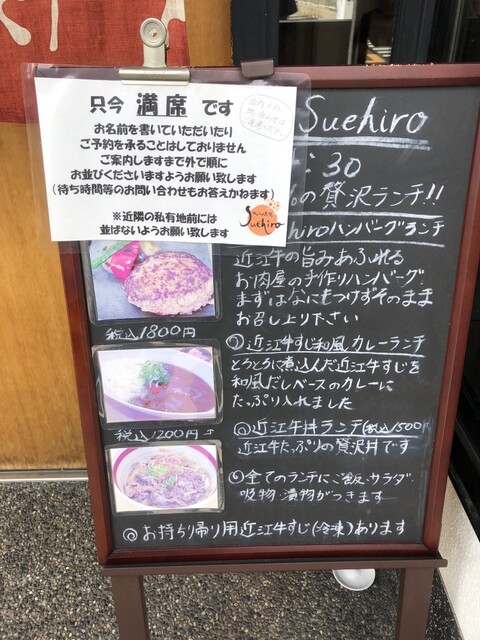 只今 満席 です
お名前を書いていただいたり
ご予約を承ることはしておりません
ご案内しますまで外で順に
お並びくださいますようお願い致します
(待ち時間等のお問い合わせもお答えかねます)
※近隣の私有地前には
並ばないようお願い致します
Suehiro
Suehiro
:30
の贅沢ランチ!!
hiroハンバーグランチ
近江牛の旨みあふれる
お肉屋の手作りハンバーグ
まずはなにもつけずそのまま
お召し上り下さい
税込1800円
近江牛すじ和風カレーランチ
とろとろに煮込んだ近江牛すじを
和風だしベースのカレーに
たっぷり入れました
税込1200円
◎近江牛丼ランチ(税込1500円
近江牛たっぷりの贅沢丼です
全てのランチにご飯、サラダ、
吸物、漬物がつきます
◎お持ち帰り用近江牛すじ(冷凍)あります